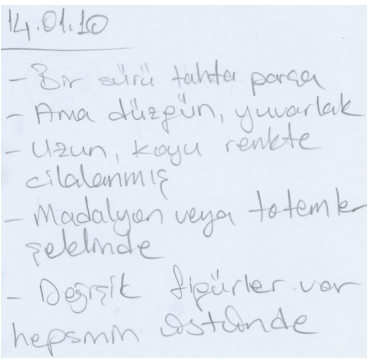 14.01.10
- Bir sürü tahta parça
- Ama düzgün, yuvarlak
- Uzun, koyu renkte
cilalanmış
- Madalyon veya totemler
şeklinde
- Değişik figürler var
hepsinin üstünde